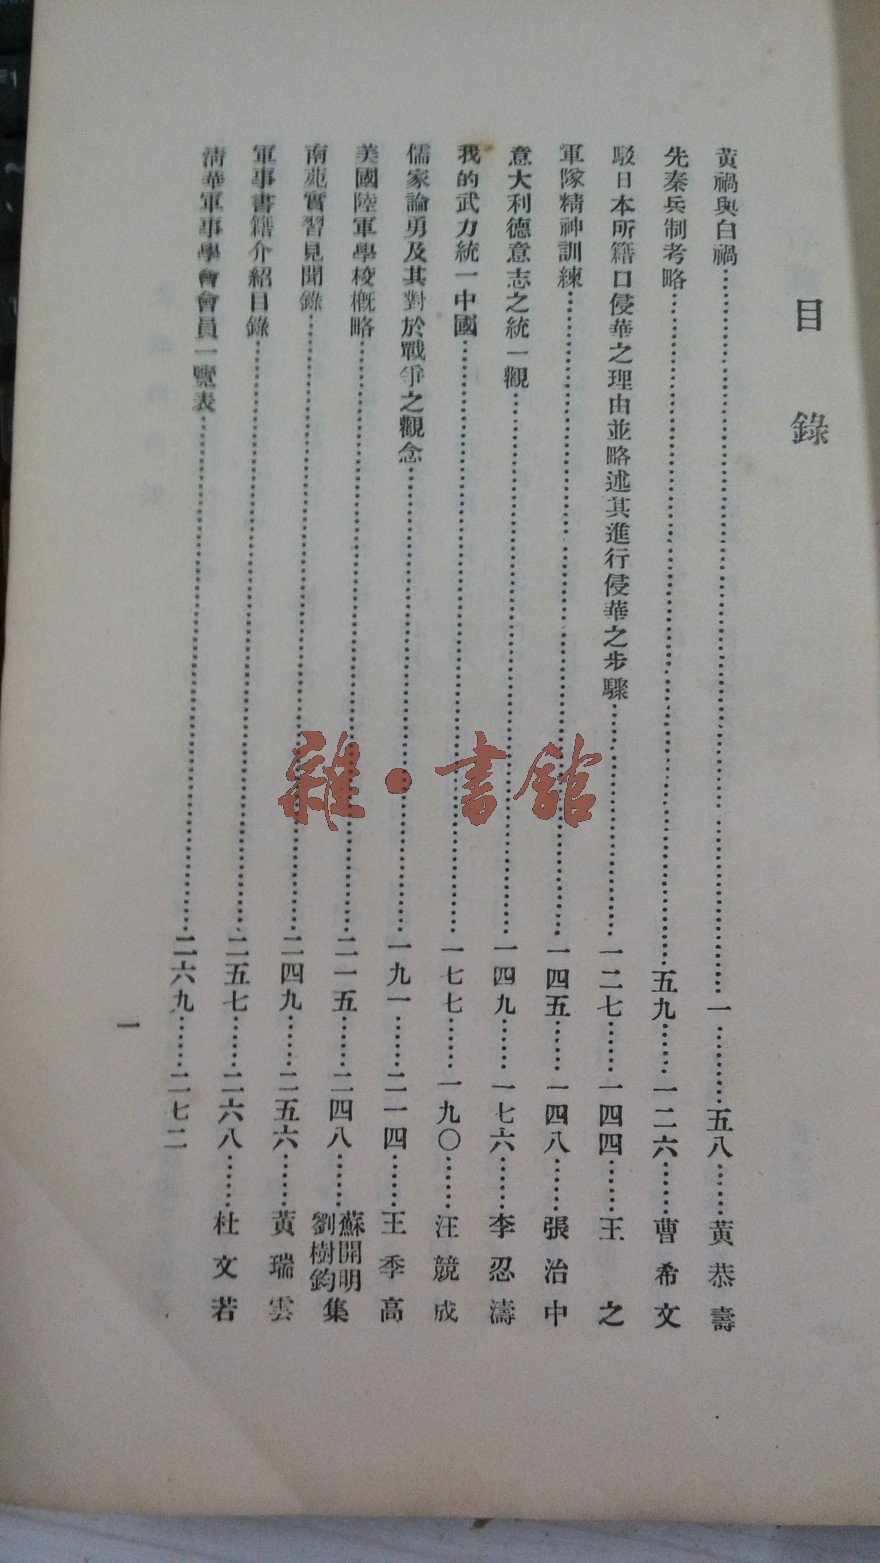 目錄
黃禍與白禍……一……五八……黃恭壽
先秦兵制考略……五九……一二六……曹希文
駁日本所籍口侵華之理由並略述其進行侵華之步驟……一二七……一四四……王之
軍隊精神訓練……一四五……一四八……張治中
意大利德意志之統一觀……一四九……一七六……李忍濤
我的武力統一中國……一七七……一九〇……汪競成
儒家論勇及其對於戰爭之觀念……一九一……二一四……王季高
美國陸軍學校概略……二一五……二四八……蘇開明劉樹鈞集
南苑實習見聞錄……二四九……二五六……黃瑞雲
軍事書籍介紹目錄……二五七……二六八……杜文若
清華軍事學會會員一覽表……二六九……二七二
一
雜·書館